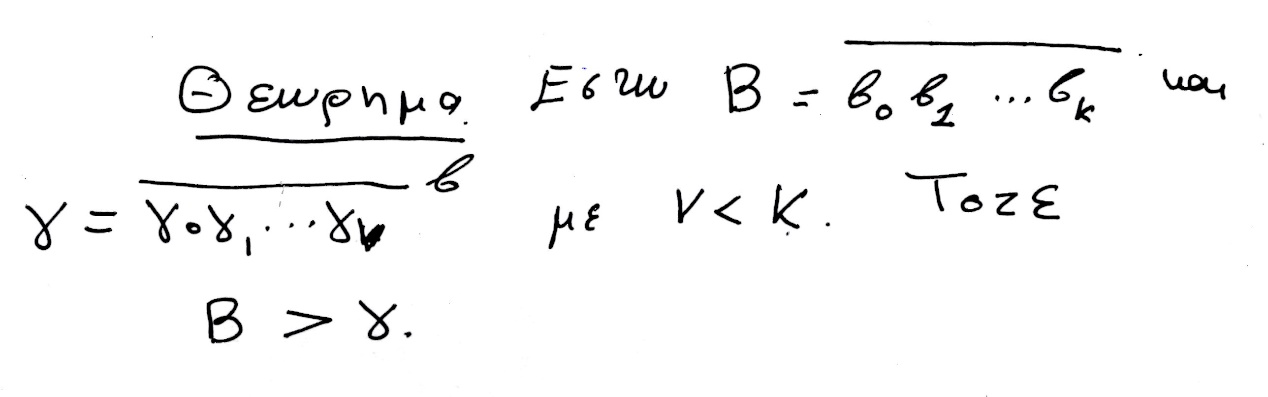 Θεωρημα. Εστω B = \overline{β₀β₁...βₖ} και
γ = \overline{γ₀γ₁...γᵥ}^β με ν < κ. Τοτε
B > γ.